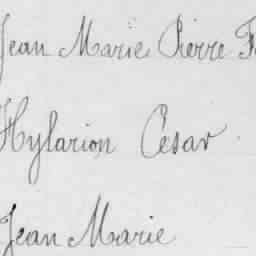 Jean Marie Pierre F
Hylarion Cesar
Jean Marie